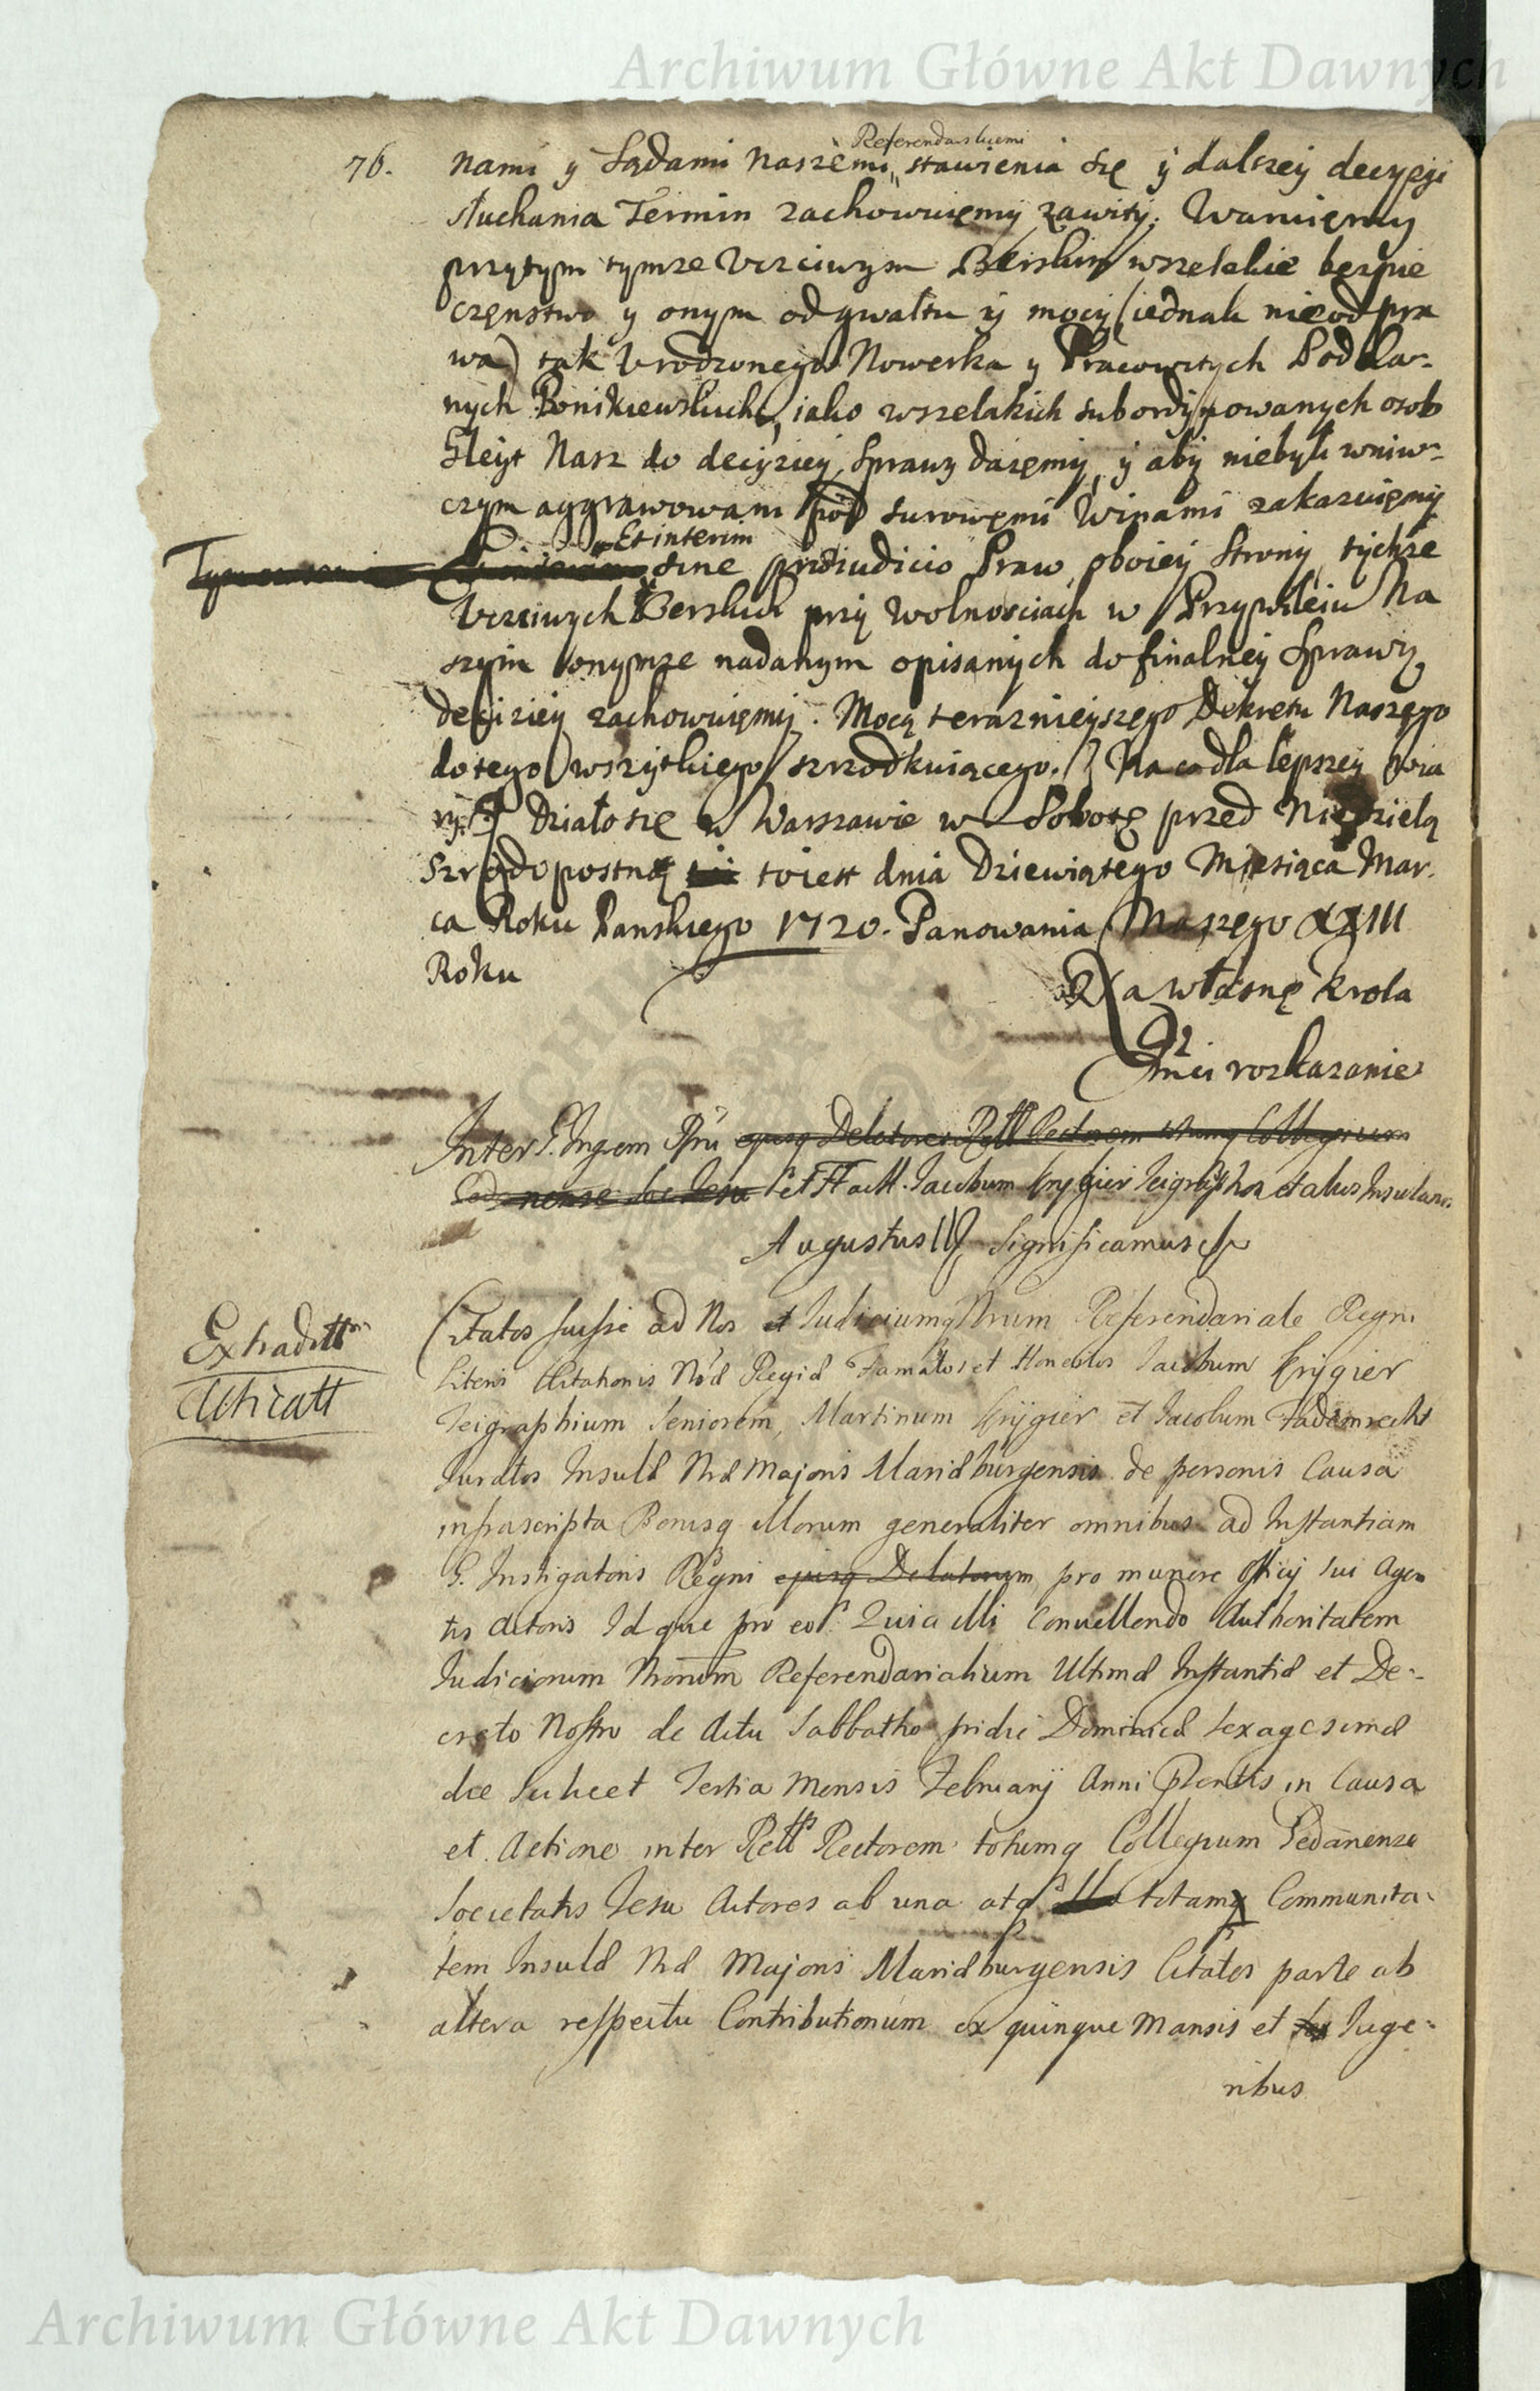 Archiwum Główne Akt Dawnych
Referendarskiemi
76. nami y Sądami Naszemi, stawienia się y dalszey decyzji
słuchania Termin zachowuięmy zawity. Waruięmy
przytym tymze Uczciwym Berskim wszelakie bezpie
częnstwo y onym od gwałtu y mocy (iednak nie od pra
wa) tak Urodzonego Nowerska y Pracowitych Podda-
nych Ponikiewskich, iako wszelakich subordynowanych osob
Gleyt Nasz do decyziey Sprawy daięmy, y aby niebyli wniw-
czym aggrawowani pod surowęmi Winami zakazuięmy
Et interim
sine priudicio Praw oboiey Strony tychze
Uczciwych Berskich przy Wolnosciach w Przywileiu Na
szym onymze nadanym opisanych do finalney Sprawy
decyziey zachowuięmy. Mocą terazniejszego Dekretu Naszego
do tego wszytkiego szrzodkuiącego. Na co dla lepszey wia
ry. Działo się w Warszawie w Sobotę przed Niedzielą
Szrodopostną toiest dnia Dziewiątego Miesiąca Mar-
ca Roku Panskiego 1720. Panowania Naszego XXIII
Roku
Na własnę Krola
Jmci roskazanie
Inter G. Ingem Rni ejusq Delatores Rectorem totumq Collegium
nense Soc Jesu et Jacobum Krygier Teigraphor et alios Insulanos
Augustus II Significamus
Extraditt
Athicatt
Citatos fuisse ad Nos et Judiciumq Nrum Referendariale Regni
Literis Citationis Nræ Regiæ Famatos et Honestos Jacobum Krygier
Teigraphium Seniorem, Martinum Krygier et Jacobum
Juratos Insulæ Nræ Majoris Mariæburgensis de personis Causa
infrascripta Bonisq illorum generaliter omnibus ad Instantiam
G. Instigatoris Regni ejusq Delatorum pro munere Officij sui Agen
tis Actoris Idque pro eo. Quia illi Convellendo Authoritatem
Judiciorum Nrorum Referendarialium Ultimæ Instantiæ et De-
creto Nostro de Actu Sabbatho pridie Dominicæ Sexagesimæ
die Scilicet Tertia Mensis February Anni Pntis in Causa
et Actione inter Rectorem totumq Collegium Gedanense
Societatis Jesu Actores ab una atq totamq Communita-
tem Insulæ Nræ Majoris Mariæburgensis Citatos parte ab
altera respectu Contributionum ex quinque Mansis et Juge-
ribus
Archiwum Główne Akt Dawnych